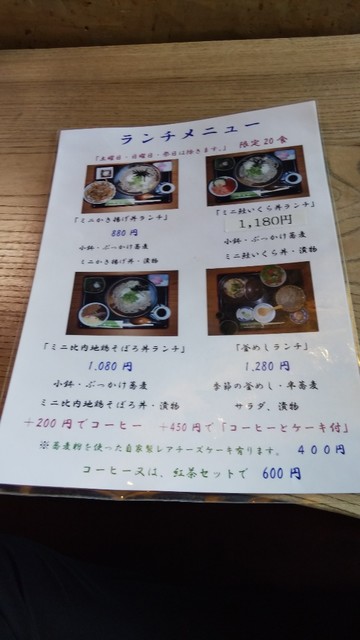 ランチメニュー
「土曜日・日曜日・祭日は除きます。」 限定20食
「ミニかき揚げ丼ランチ」
880円
小鉢・ぶっかけ蕎麦
ミニかき揚げ丼・漬物
「ミニ鮭いくら丼ランチ」
1,180円
小鉢・ぶっかけ蕎麦
ミニ鮭いくら丼・漬物
「ミニ比内地鶏そぼろ丼ランチ」
1,080円
小鉢・ぶっかけ蕎麦
ミニ比内地鶏そぼろ丼・漬物
「釜めしランチ」
1,280円
季節の釜めし・半蕎麦
サラダ、漬物
+200円でコーヒー +450円で「コーヒーとケーキ付」
※蕎麦粉を使った自家製レアチーズケーキ有ります。 400円
コーヒー又は、紅茶セットで 600円